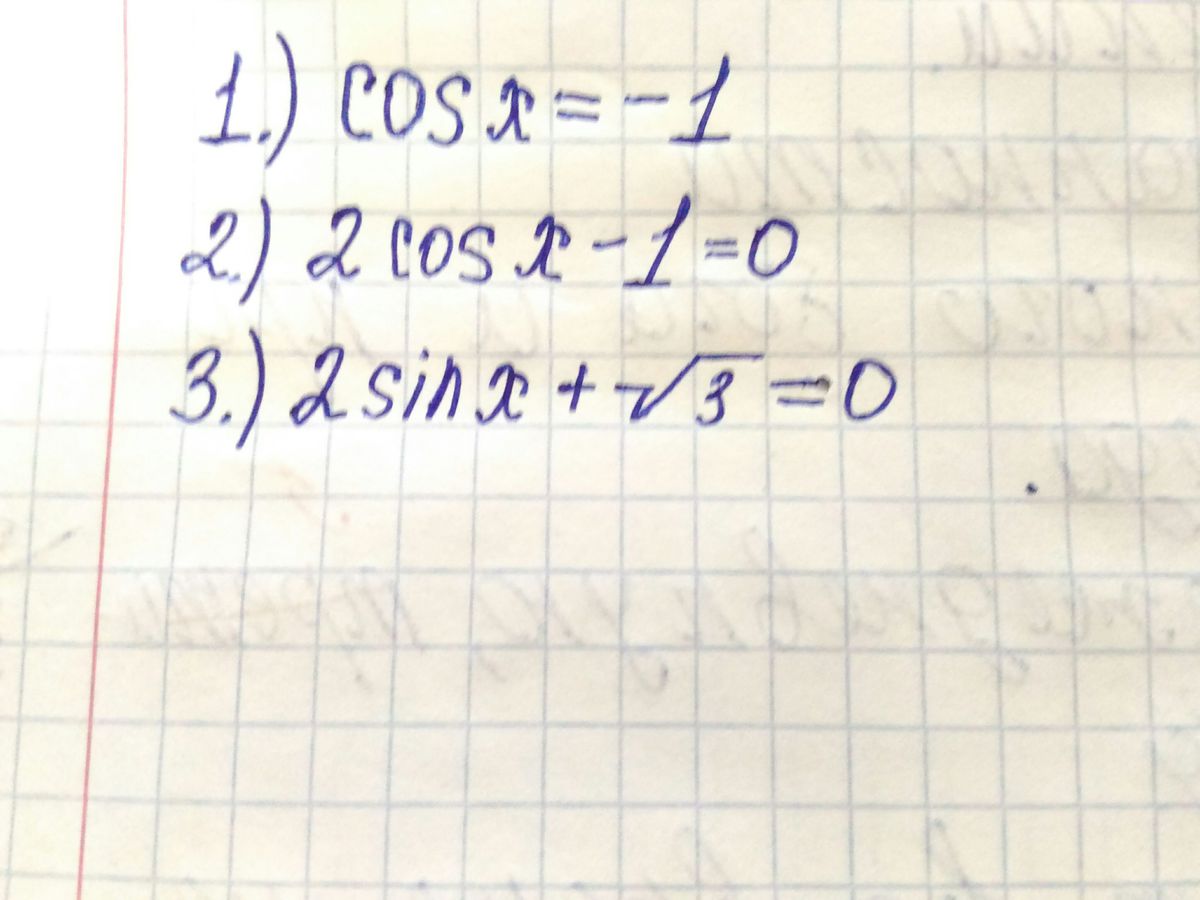 1.) cos x = -1
2.) 2 cos x - 1 = 0
3.) 2 sin x + √3 = 0